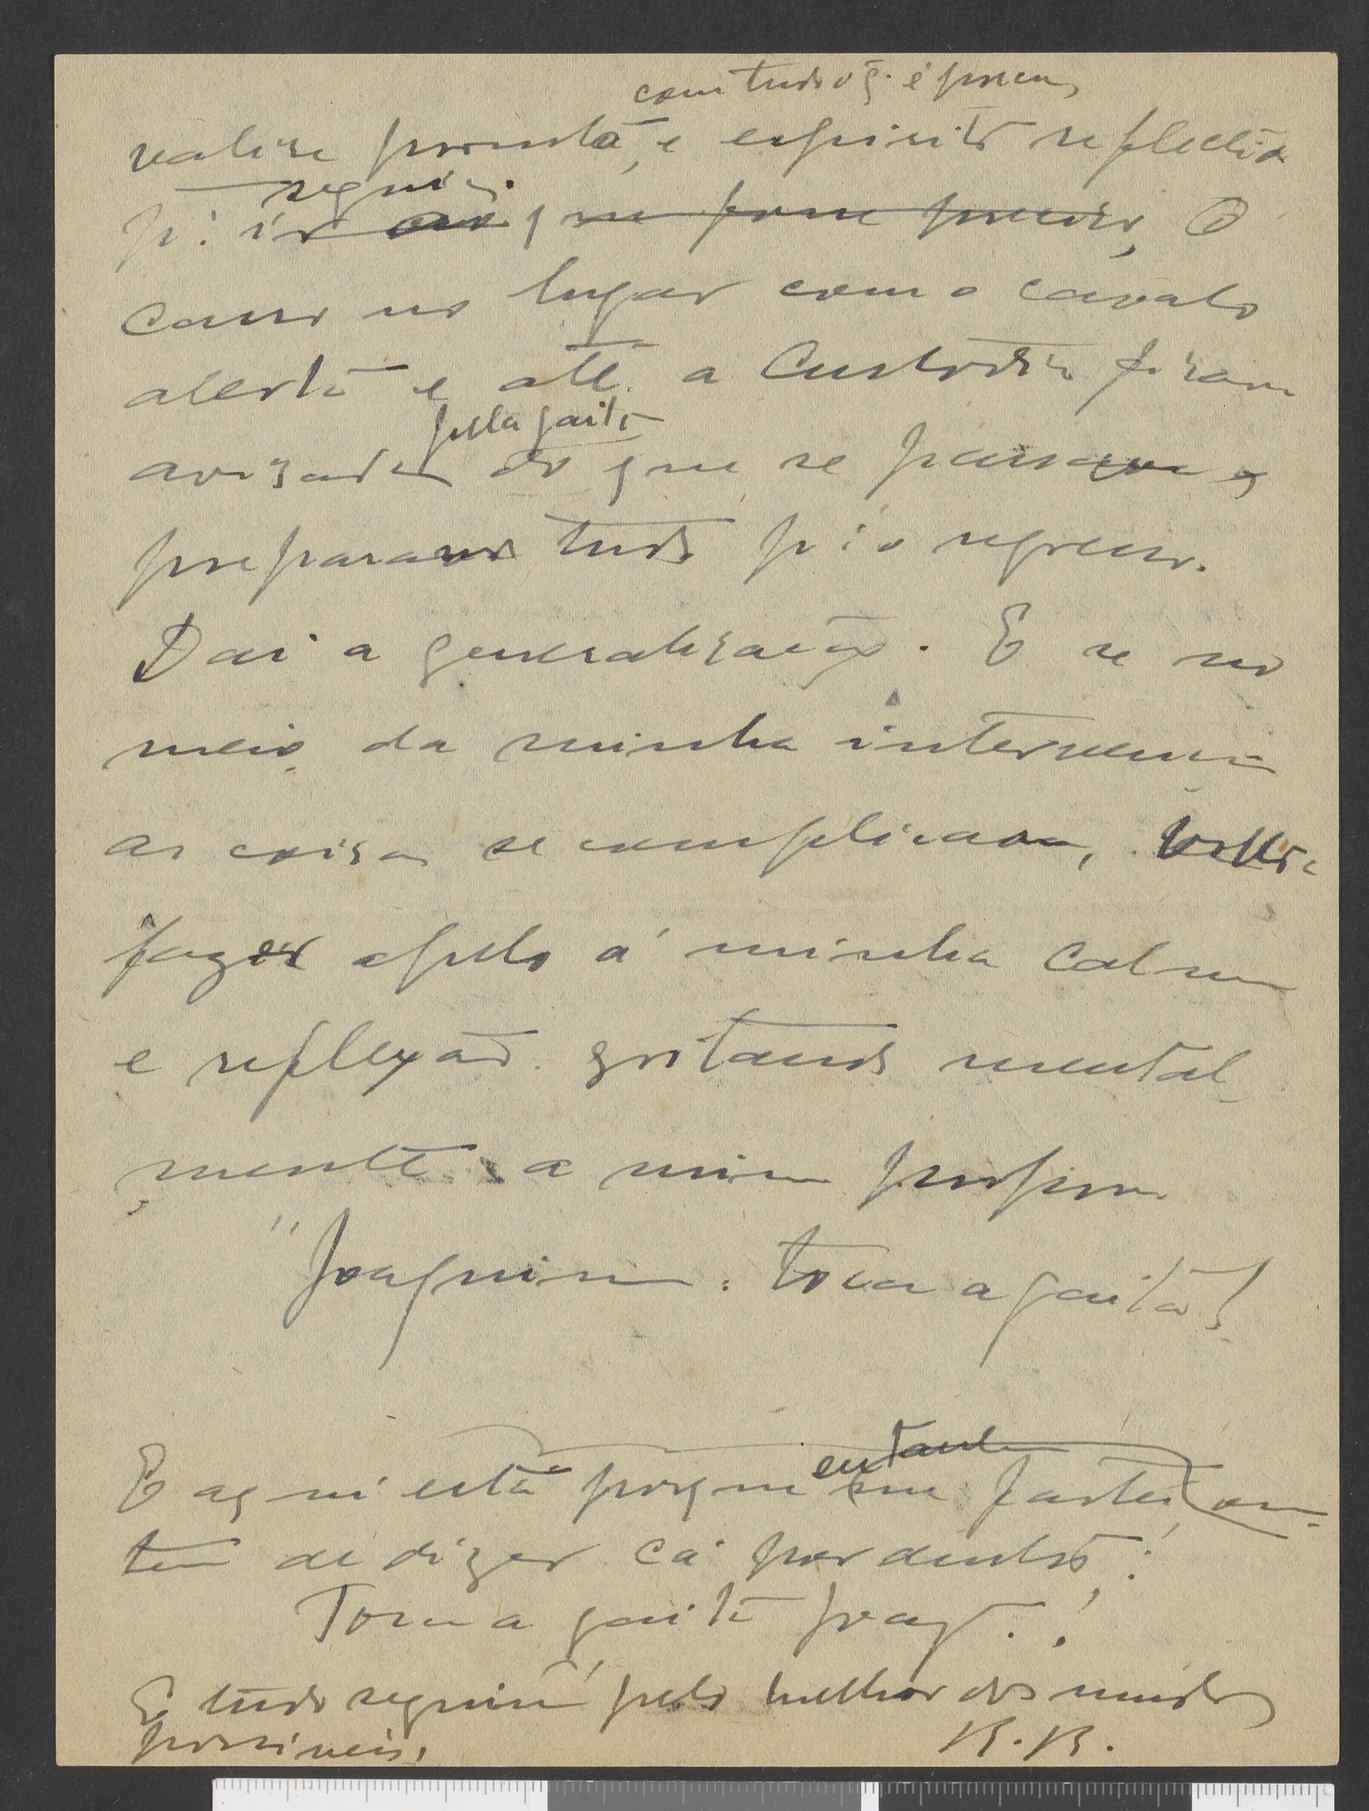 com tudo o q. é preciso,
valise prompta, e espirito reflectido
seguir.
p.ª ir ao que fosse preciso, O
carro no lugar com o cavalo
alerta e até a Custodia ficam
pela gaita
avisados do que se passa e
preparavam tudo p.ª o regresso.
Dai a generalização. E se no
meio da minha intervenção
as coisas se complicavam,
fazer apelo á minha calma
e reflexão gritando mental-
mente a mim proprio
"Joaquim: toca a gaita!
entanto
E aqui está porque em
de dizer cá por dentro:
Toca a gaita Joaq.!
E tudo seguirá pelo melhor dos mundos
possiveis.